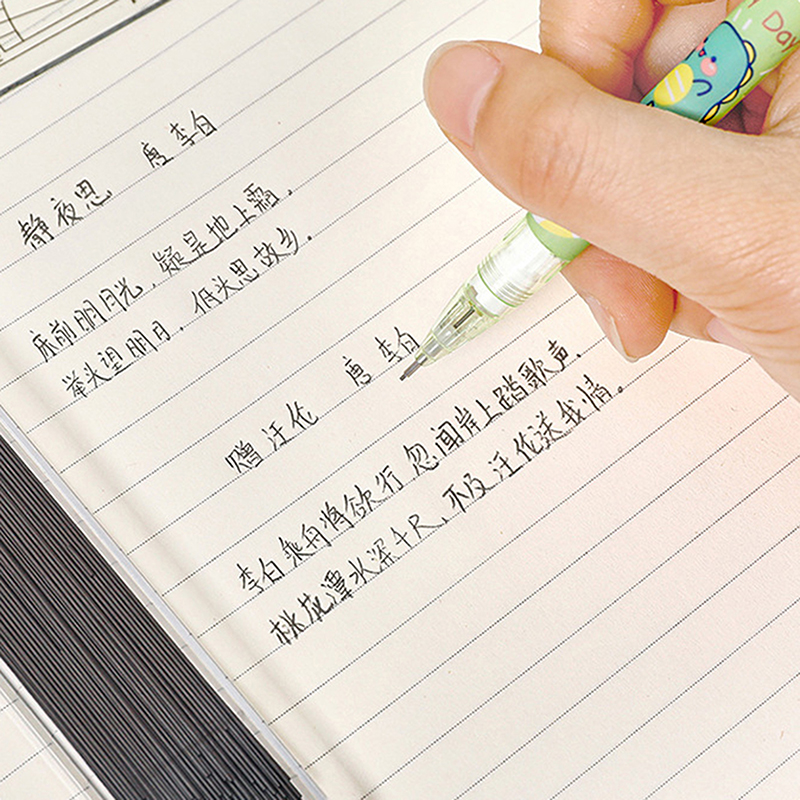 y Day
静夜思 唐 李白
床前明月光,疑是地上霜,
举头望明月,低头思故乡.
赠汪伦 唐 李白
李白乘舟将欲行 忽闻岸上踏歌声.
桃花潭水深千尺,不及汪伦送我情。